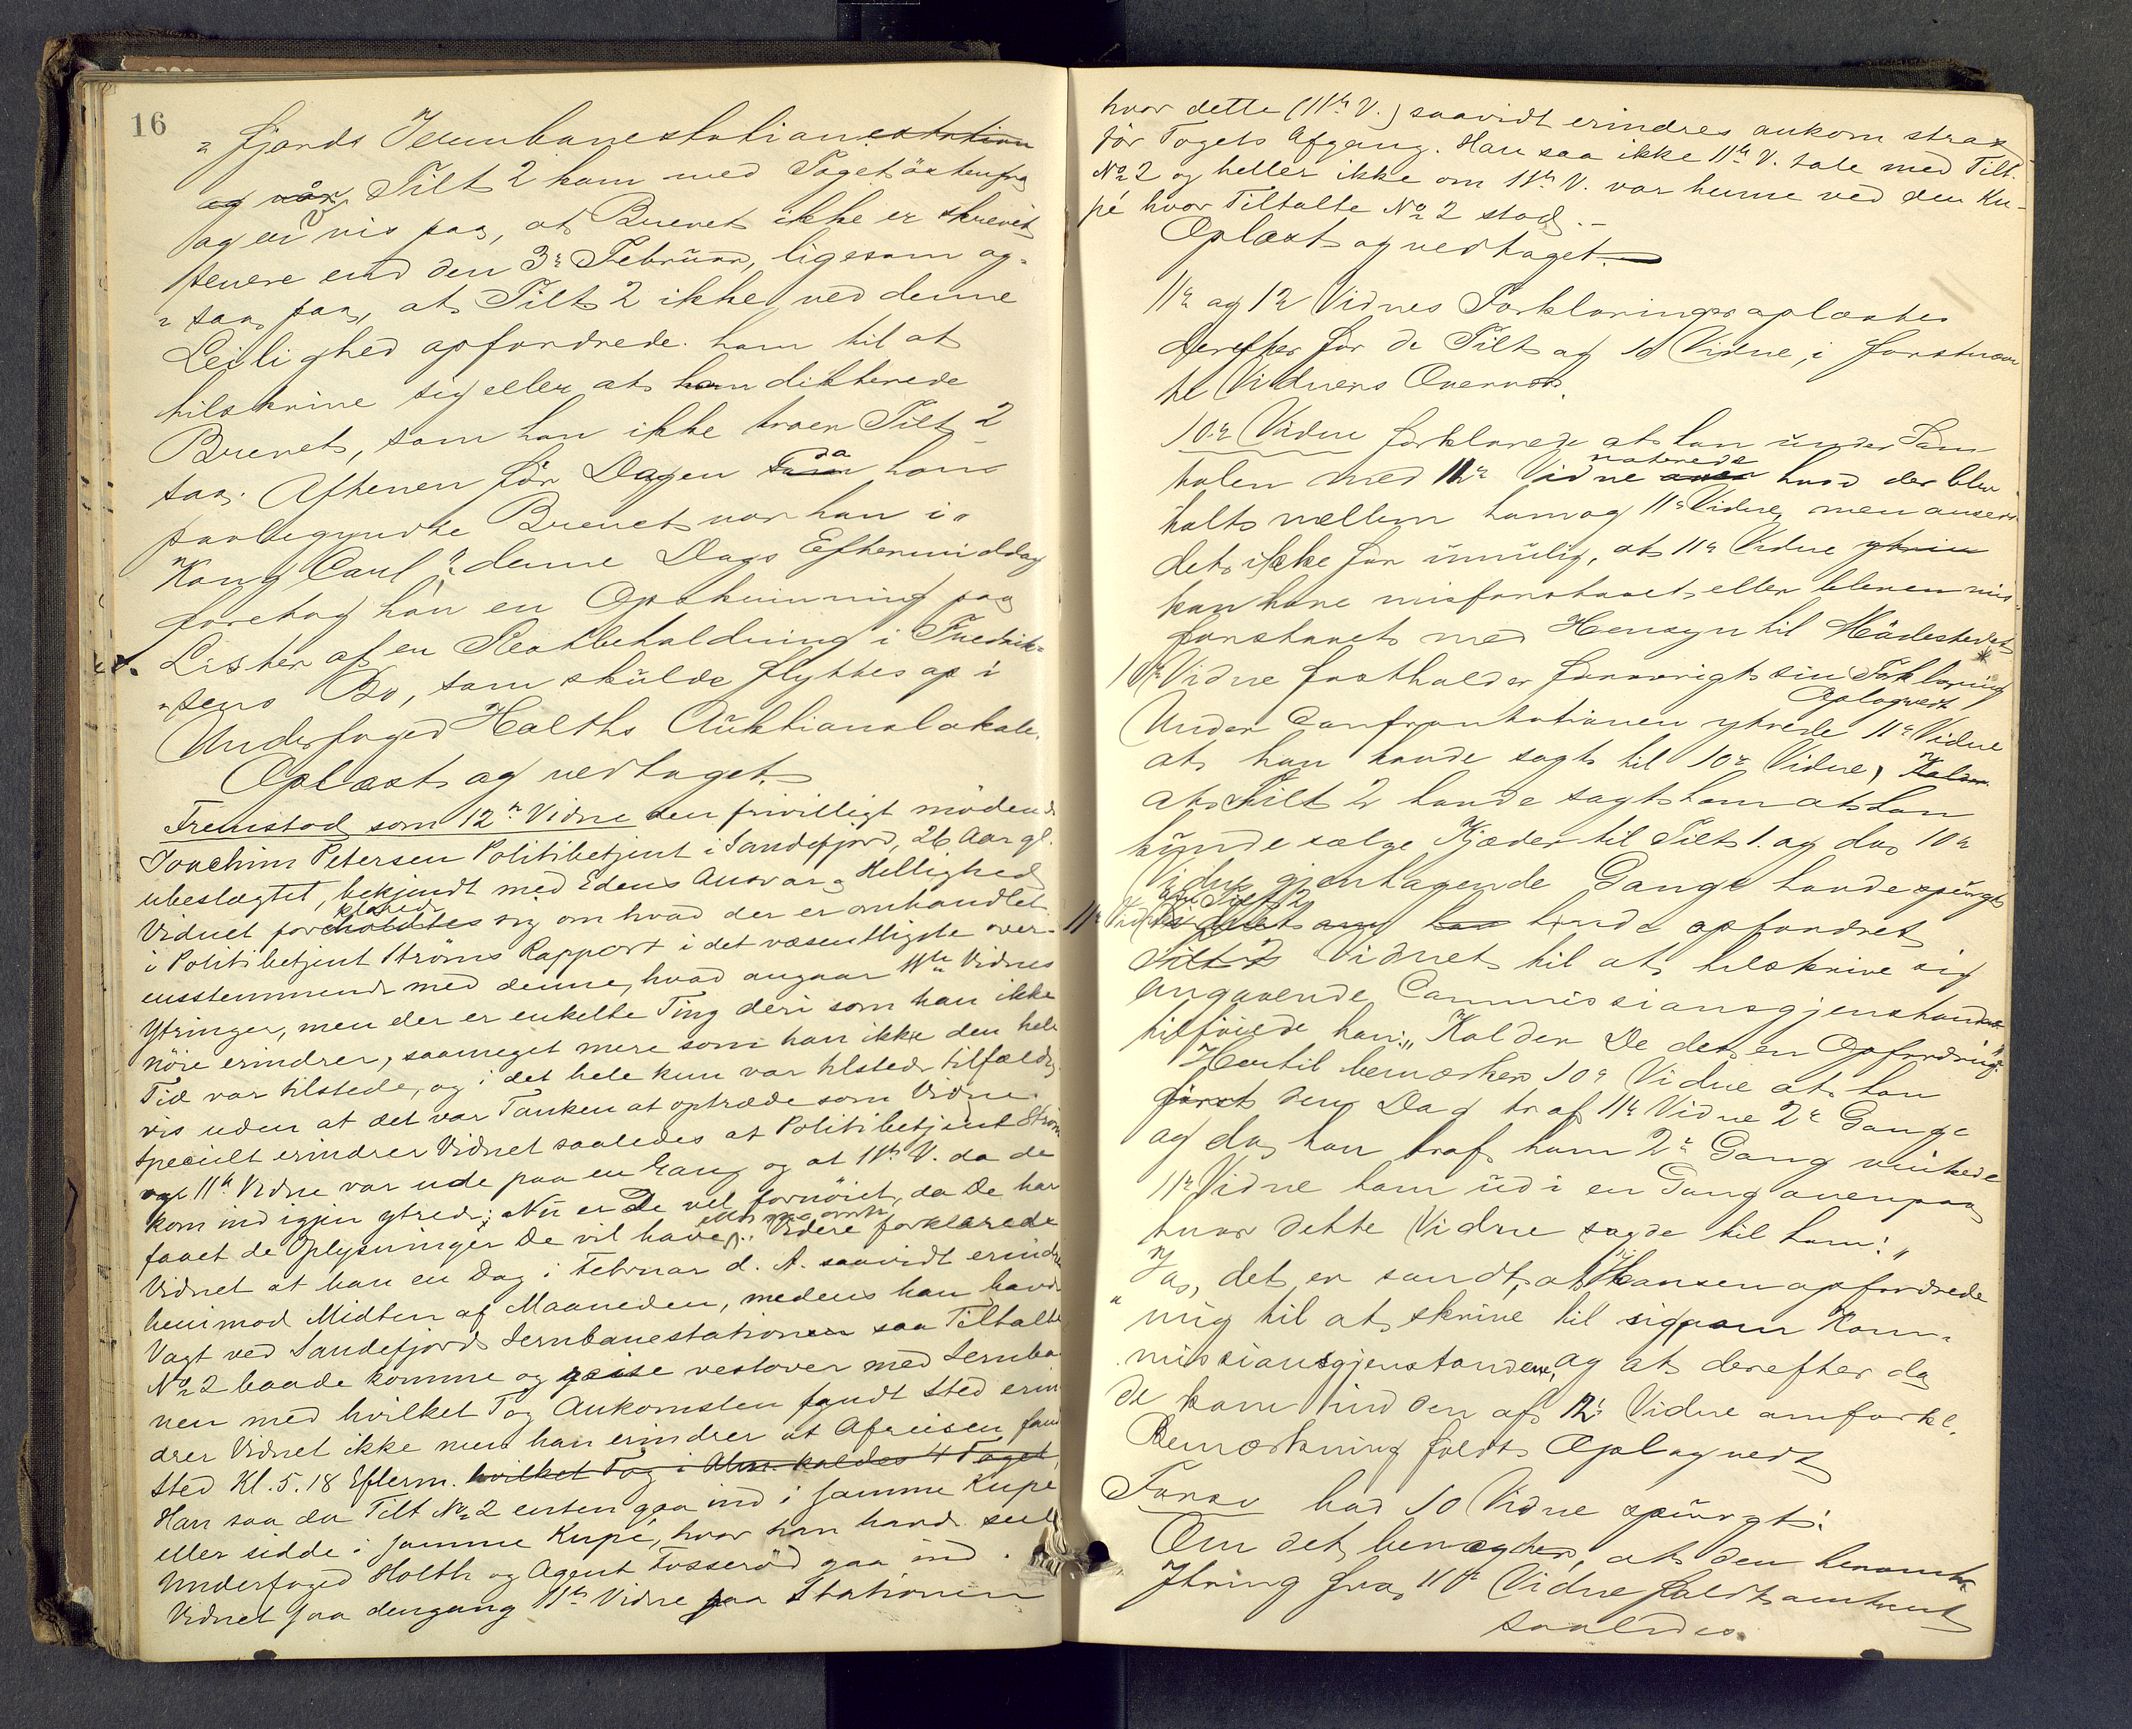 16
„ fjords Jernbanestation estation
og når Tilt 2 kom med Toget östenfra
og er vis paa, at Brevet ikke er skrevet
senere end den 3e Februar, ligesom og-
„ saa paa, at Tilt 2 ikke ved denne
Leilighed opfordrede ham til at
tilskrive sig eller at han dikterede
Brevet, som han ikke troer Tilt 2
saa. Aftenen før Dagen som da hans
paabegyndte Brevet var han i „
„Kong Carl“. denne Dags Eftermiddag
foretog han en Opskrivning paa
Lister af en Restbeholdning i Fredrik-
„sens Bo, som skulde flyttes op i
Underfoged Holths Auktionslokale.
Oplæst og vedtaget.
Fremstod som 12te Vidne den frivilligt mödende
Joachim Petersen Politibetjent i Sandefjord, 26 Aar gl.
ubeslægtet, bekjendt med Edens Ansvar og Hellighed
Vidnet forklarede sig om hvad der er omhandlet
i Politibetjent Ströms Rapport i det væsentligste over-
ensstemmende med denne, hvad angaar 11te Vidnes
Ytringer, men der er enkelte Ting deri som han ikke
nöie erindrer, saameget mere som han ikke den hele
Tid var tilstede, og i det hele kun var tilstede tilfældig-
vis uden at det var Tanken at optræde som Vidne.
Specielt erindrer Vidnet saaledes at Politibetjent Ström
og 11te Vidne var ude paa en Gang og at 11te V. da de
kom ind igjen ytrede: Nu er De vel fornöiet, da De har
faaet de Oplysninger De vil have. Videre forklarede
Vidnet at han en Dag i Februar d. A. saavidt erindres
henimod Midten af Maaneden, medens han havde
Vagt ved Sandefjords Jernbanestationen saa Tiltalte
No 2 baade komme og reise vestover med Jernba-
nen med hvilket Tog Ankomsten fandt Sted erin-
drer Vidnet ikke men han erindrer at Afreisen fandt
Sted Kl. 5.18 Efterm. hvilket Tog i Alm. kaldes 4 Toget.
Han saa da Tilt No 2 enten gaa ind i samme Kupe
eller sidde i samme Kupé, hvor han havde seet
Underfoged Holth og Agent Fosseröd gaa ind.
Vidnet saa dengang 11te Vidne paa Stationen
hvor dette (11te V.) saavidt erindres ankom strax
för Togets Afgang. Han saa ikke 11te V. tale med Tilt.
No 2 og heller ikke om 11te V. var henne ved den Ku-
pé hvor Tiltalte No 2 stod.
Oplæst og vedtaget.
11e og 12e Vidnes Forklaringer oplæstes
derefter for de Tilt og 10 Vidne, i førstnævn
te Vidners Overvær.
10e Vidne forklarede at han under Sam
talen med 11e Vidne noterede hvad der blev
talt mellem ham og 11e Vidne, men anser
det ikke for umulig, at 11e Vidne
kan have misforstaaet eller bleven mis-
forstaaet med Hensyn til Mödestedet
10e Vidne fastholder forövrigt sin Forklaring
Oplogvedt
Under Confrontationen ytrede 11e Vidne
at han havde sagt til 10e Vidne,
at Tilt 2 havde sagt ham at han
kunde sælge Kjæder til Tilt 1. og da 10e
Vidne gjentagende Gange havde spurgt
11e Vidne om Tilt 2 havde opfordret
Tilt 2 Vidnet til at tilskrive sig
angaaende Commissionsgjenstande
tilföiede han: „Kalder De det en Opfordring“.
Hertil bemærker 10e Vidne at han
först den Dag traf 11e Vidne 2e Gange
og da han traf ham 2e Gang vinkede
11e Vidne ham ud i en Gang ovenpaa
hvor dette Vidne sagde til ham: „
„Ja, det er sandt, at Hansen opfordrede
„mig til at skrive til sig om Kom-
missionsgjenstandene, og at derefter da
de kom ind den af 12e Vidne omforkl.
Bemærkning faldt Oplogvedt
Forsv bad 10 Vidne spurgt:
Om det benægter, at den benævnte
Ytring fra 11te Vidne faldt omtrent
saaledes.